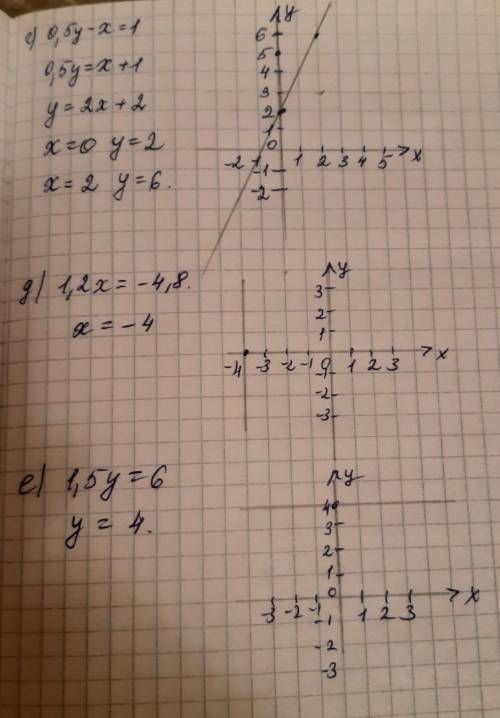 c) 0,5y-x=1
0,5y=x+1
y=2x+2
x=0 y=2
x=2 y=6.
y
6
5
4
3
2
1
0
-2 -1 1 2 3 4 5 x
-1
-2
д) 1,2x = -4,8.
x = -4
y
3
2
1
-4 -3 -2 -1 0 1 2 3 x
-1
-2
-3
е) 1,5y = 6
y = 4.
y
4
3
2
1
0
-3 -2 -1 1 2 3 x
-1
-2
-3